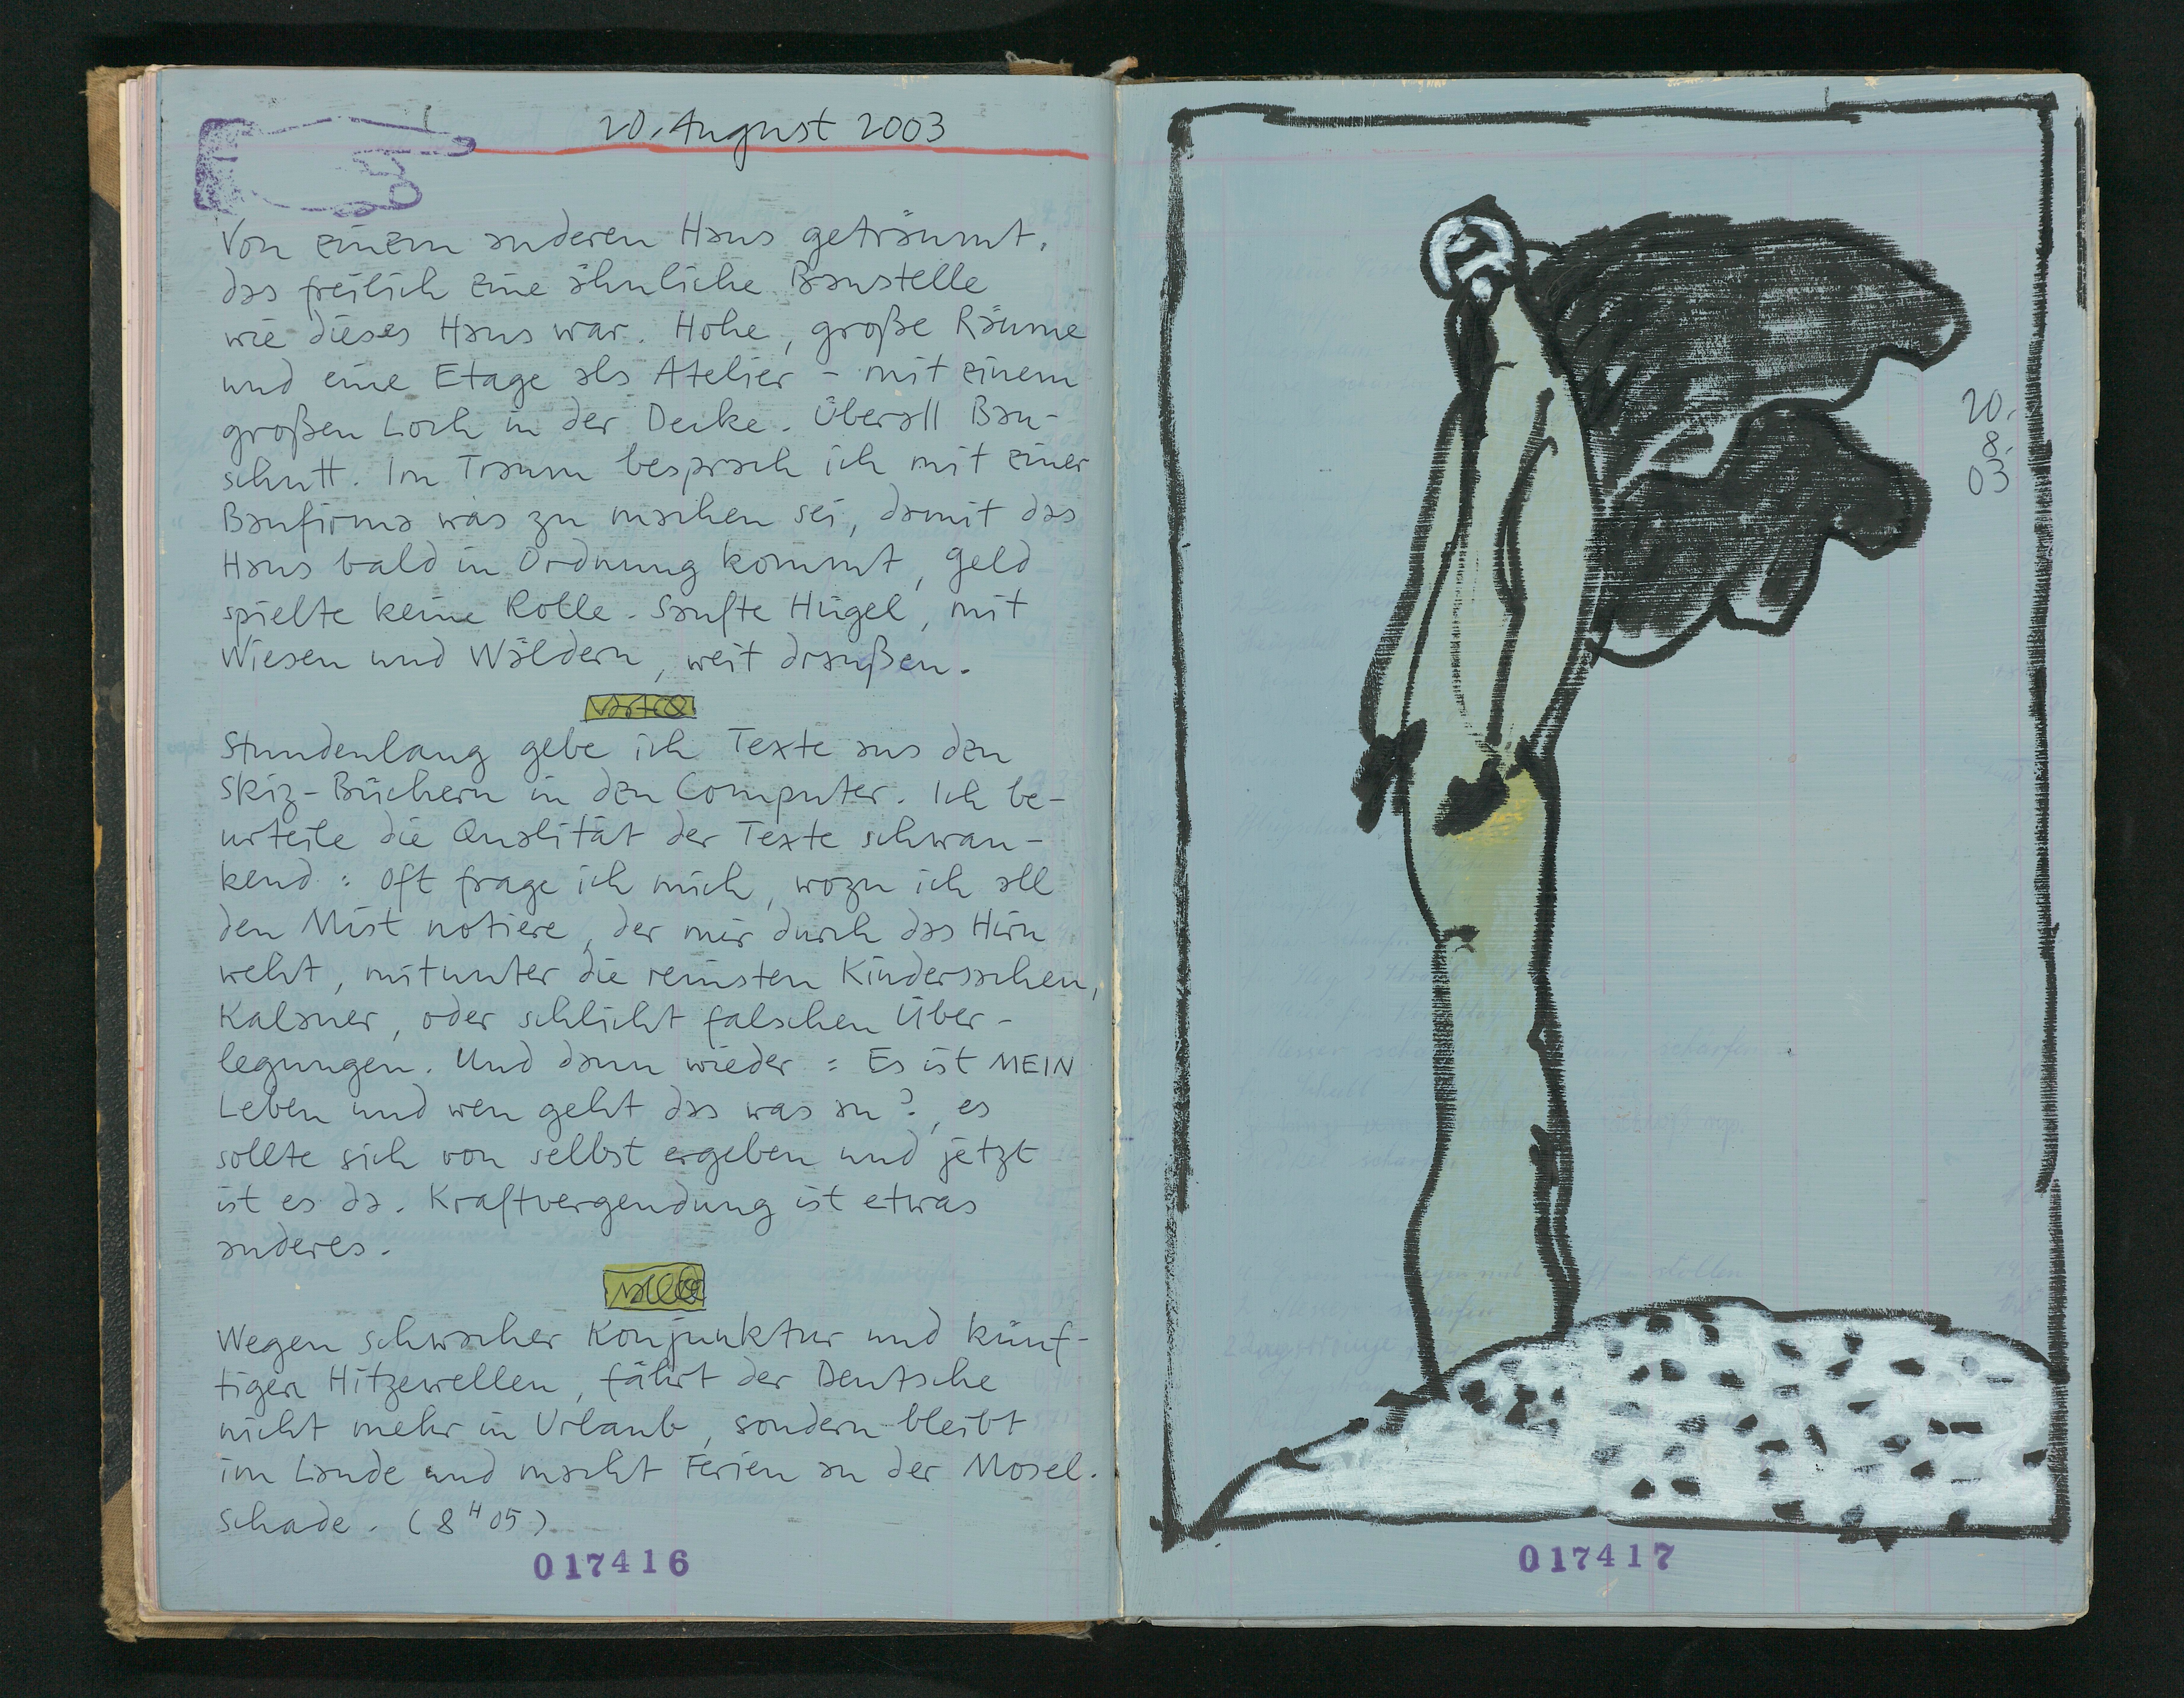 20. August 2003
Von einem anderen Haus geträumt,
das freilich eine ähnliche Baustelle
wie dieses Haus war. Hohe, große Räume
und eine Etage als Atelier - mit einem
großen Loch in der Decke. Überall Bau-
schutt. Im Traum besprach ich mit einer
Baufirma was zu machen sei, damit das
Haus bald in Ordnung kommt, Geld
spielte keine Rolle. Sanfte Hügel, mit
Wiesen und Wäldern, weit draußen.
Stundenlang gebe ich Texte aus den
Skiz-Büchern in den Computer. Ich be-
urteile die Qualität der Texte schwan-
kend: oft frage ich mich, wozu ich all
den Mist notiere, der mir durch das Hirn
weht, mitunter die reinsten Kindersachen,
Kalauer, oder schlicht falschen Über-
legungen. Und dann wieder: Es ist MEIN
Leben und wen geht das was an?, es
sollte sich von selbst ergeben und jetzt
ist es da. Kraftvergendung ist etwas
anderes.
Wegen schwacher Konjunktur und künf-
tigen Hitzewellen, fährt der Deutsche
nicht mehr in Urlaub, sondern bleibt
im Lande und macht Ferien an der Mosel.
Schade. (8 H 05)
017416
20.
8.
03
017417